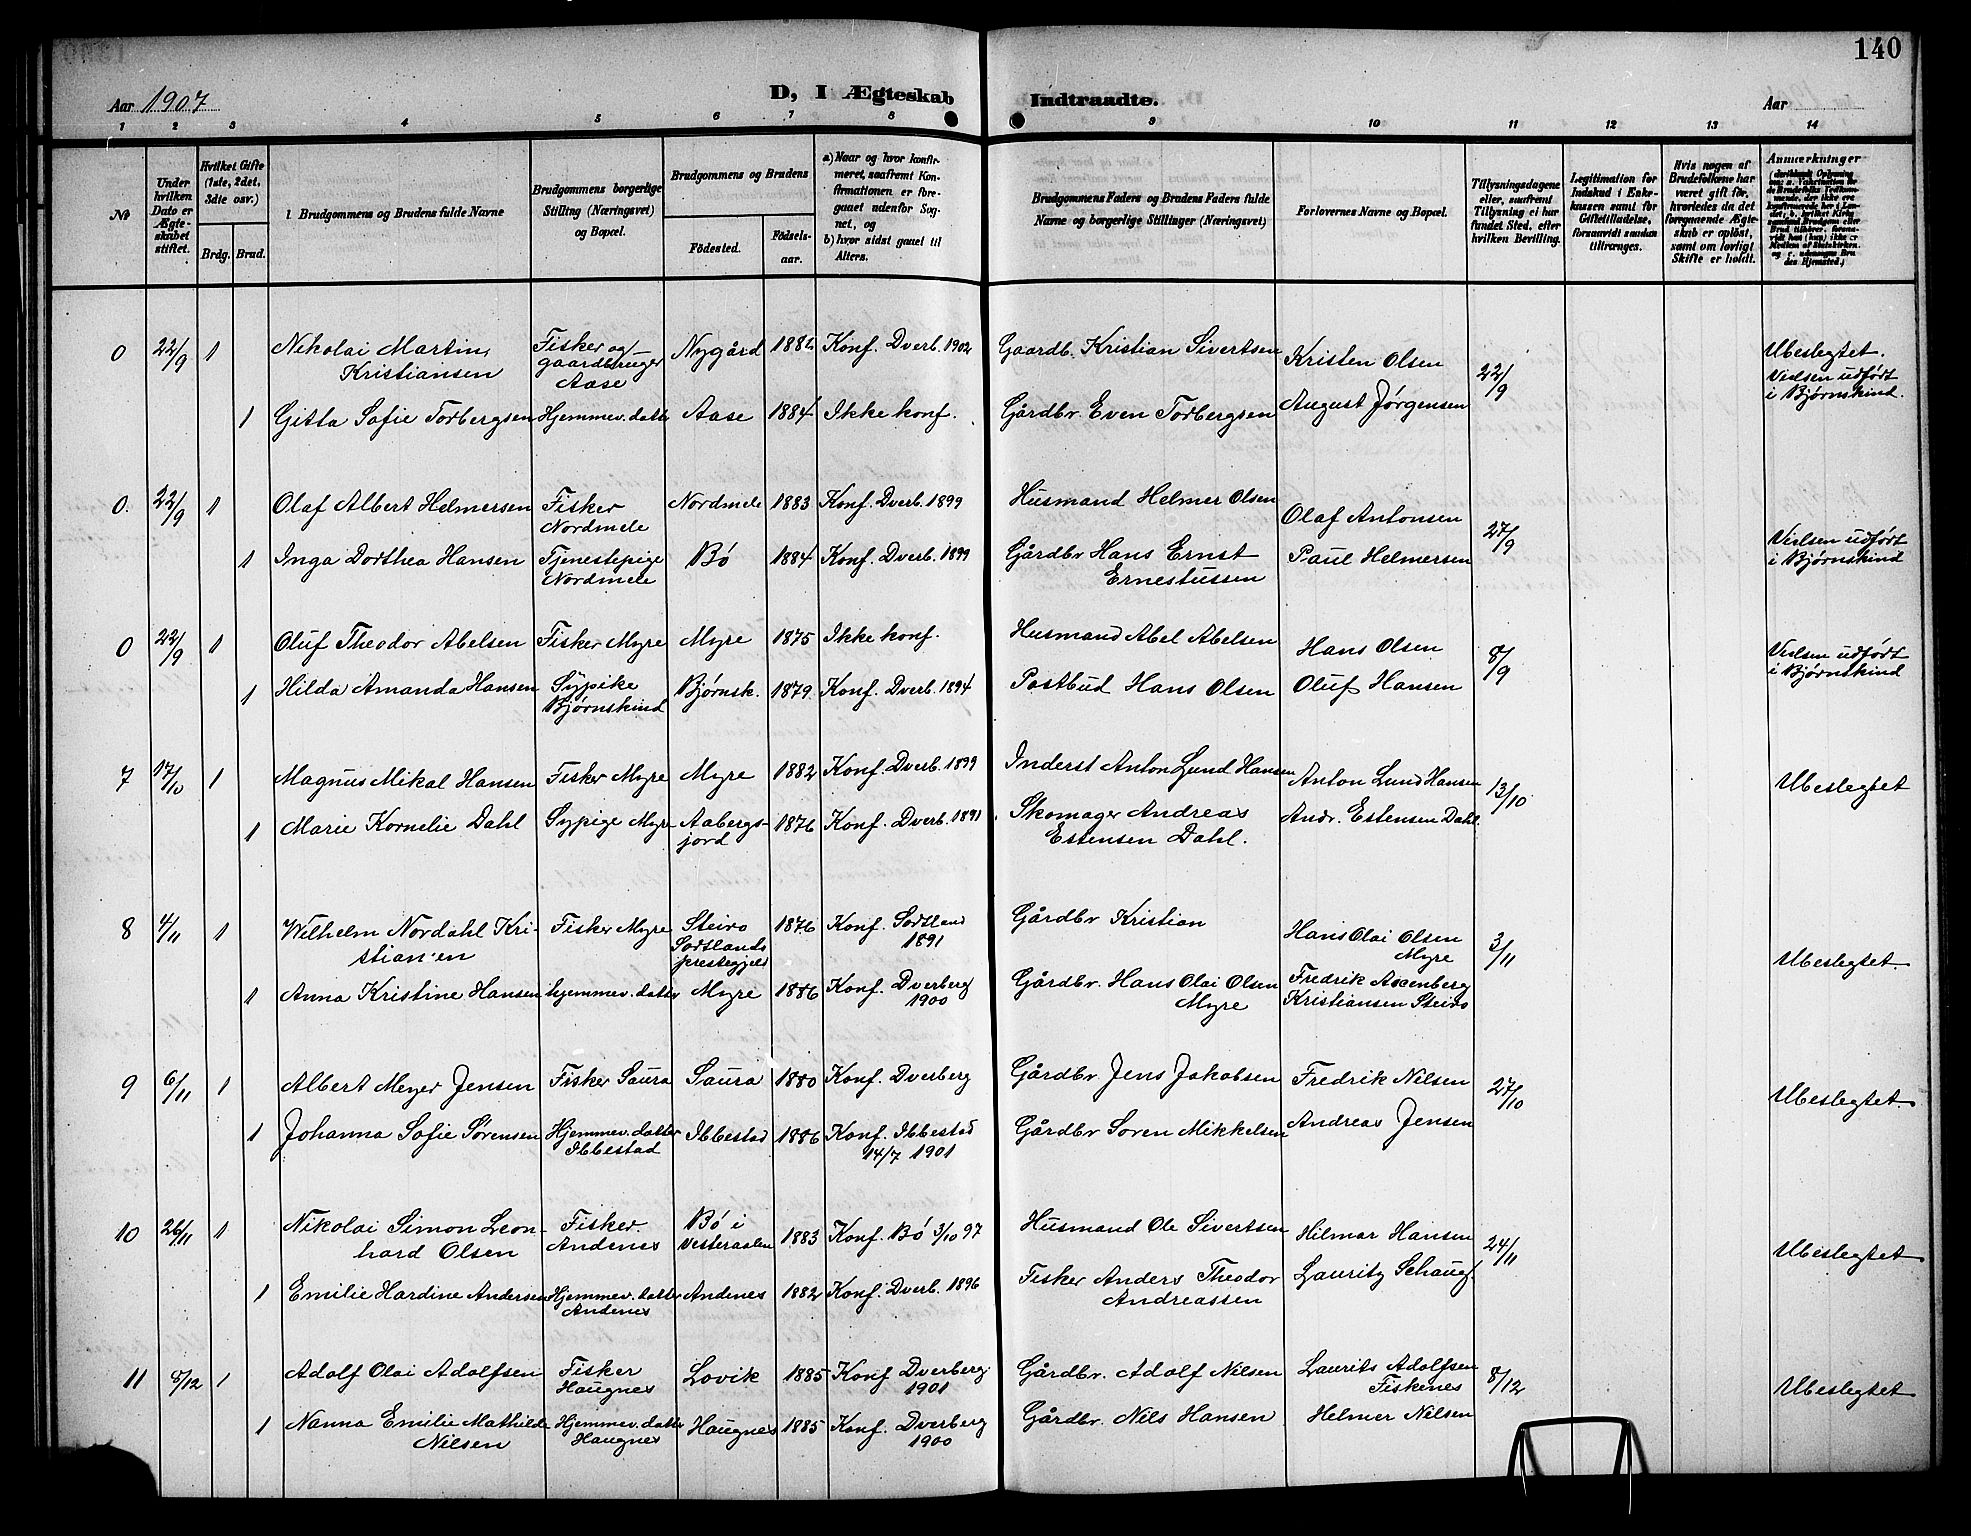 140
Aar 1907
D, I Ægteskab
Indtraadte.
Aar
1 2 3 4 5 6 7 8 9 10 11 12 13 14
№
Under
hvilken
Dato er
Ægte-
skabet
stiftet.
Hvilket Gifte
(1ste, 2det,
3die osv.)
Brdg. Brud.
Brudgommens og Brudens fulde Navne
Brudgommens borgerlige
Stilling (Næringsvei)
og Bopæl.
Brudgommens og Brudens
Fødested.
Fødsels-
aar.
a) Naar og hvor konfir-
meret, saafremt Kon-
firmationen er fore-
gaaet udenfor Sog-
net, og
b) hvor sidst gaaet til
Alters.
Brudgommens Faders og Brudens Faders fulde
Navne og borgerlige Stillinger (Næringsvei)
Forlovernes Navne og Bopæl.
Tillysningsdagene
eller, saafremt
Tillysning ei har
fundet Sted, efter
hvilken Bevilling.
Legitimation for
Indskud i Enke-
kassen samt for
Giftetilladelse,
forsaavidt saadan
tiltrænges.
Hvis nogen af
Brudefolkene har
været gift før,
hvorledes da det
foregaaende Ægte-
skab er opløst,
samt om lovligt
Skifte er holdt.
Anmærkninger
0 22/9 1 Nikolai Martin Fisker og Nygård 1881 Konf. Dverb. 1902 Gaardb. Kristian Sivertsen Kristen Olsen 22/9 Ubeslegtet.
Kristiansen gaardbruger Vielsen udført
Aase i Bjørnskind.
1 Gitta Sofie Torbergsen Hjemmev. datter Aase 1884 Ikke konf. Gårdbr. Even Torbergsen August Jørgensen
0. 22/9 1 Olaf Albert Helmersen Fisker Nordmele 1883 Konf. Dverb. 1899 Husmand Helmer Olsen Olaf Antonsen 27/9
Nordmele
1 Inga Dorthea Hansen Tjenestepige Bö 1884 Konf. Dverb. 1899 Gårdbr Hans Ernst Paul Helmersen Vielsen udført
Nordmele Ernestussen i Bjørnskind
0 22/9 1 Oluf Theodor Abelsen Fisker Myre Myre 1875 Ikke konf. Husmand Abel Abelsen Hans Olsen 8/9 Vielsen udført
i Bjørnskind
1 Hilda Amanda Hansen Sypike Bjørnsk. 1879 Konf. Dverb. 1894 Postbud Hans Olsen Oluf Hansen
Bjørnskind
7 17/10 1 Magnus Mikal Hansen Fisker Myre Myre 1882 Konf. Dverb. 1899 Inderst Anton Lund Hansen Anton Lund Hansen 13/10 Ubeslegtet
1 Marie Kornelie Dahl Sypige Myre Aabergs- 1876 Konf. Dverb. 1891 Skomager Andreas Andr. Estensen Dahl.
jord Estensen Dahl.
8 4/11 1 Wilhelm Nordahl Kri- Fisker Myre Steiro 1876 Konf. Sortland Gårdbr Kristian Hans Olai Olsen 3/11 Ubeslegtet.
stian'en Sortlands 1891 Myre
prestegjeld
1 Anna Kristine Hansen hjemmev. datter Myre 1886 Konf. Dverberg Gårdbr. Hans Olai Olsen Fredrik Axenberg
1900 Myre Kristiansen Steiro
9 6/11 1 Albert Meyer Jensen Fisker Saura Saura 1880 Konf. Dverberg Gårdbr Jens Jakobsen Fredrik Nilsen 27/10 Ubeslegtet.
1 Johanna Sofie Sørensen Hjemmev. datter Ibbestad 1886 Konf. Ibbestad Gårdbr Søren Mikkelsen Andreas Jensen
Ibbestad 14/7 1901
10 26/11 1 Nikolai Simon Leon- Fisker. Bö i 1883 Konf. Bö 3/10 97 Husmand Ole Sivertsen Hilmar Hansen 24/11 Ubeslegtet
hard Olsen Andenes Vesteraalen
1 Emilie Hardine Andersen Hjemmev. datter Andenes 1882 Konf. Dverb. 1896 Fisker Anders Theodor Lauritz Schaug.
Andenes Andreassen
11 8/12 1 Adolf Olai Adolfsen Fisker Lovik 1885 Konf Dverberg Gårdbr. Adolf Nilsen Laurits Adolfsen 8/12 Ubeslegtet
Haugnes 1901 Fiskenes
1 Nanna Emilie Mathilde Hjemmev. datter Haugnes 1885 Konf. Dverberg Gårdbr. Nils Hansen Helmer Nilsen
Nilsen Haugnes 1900